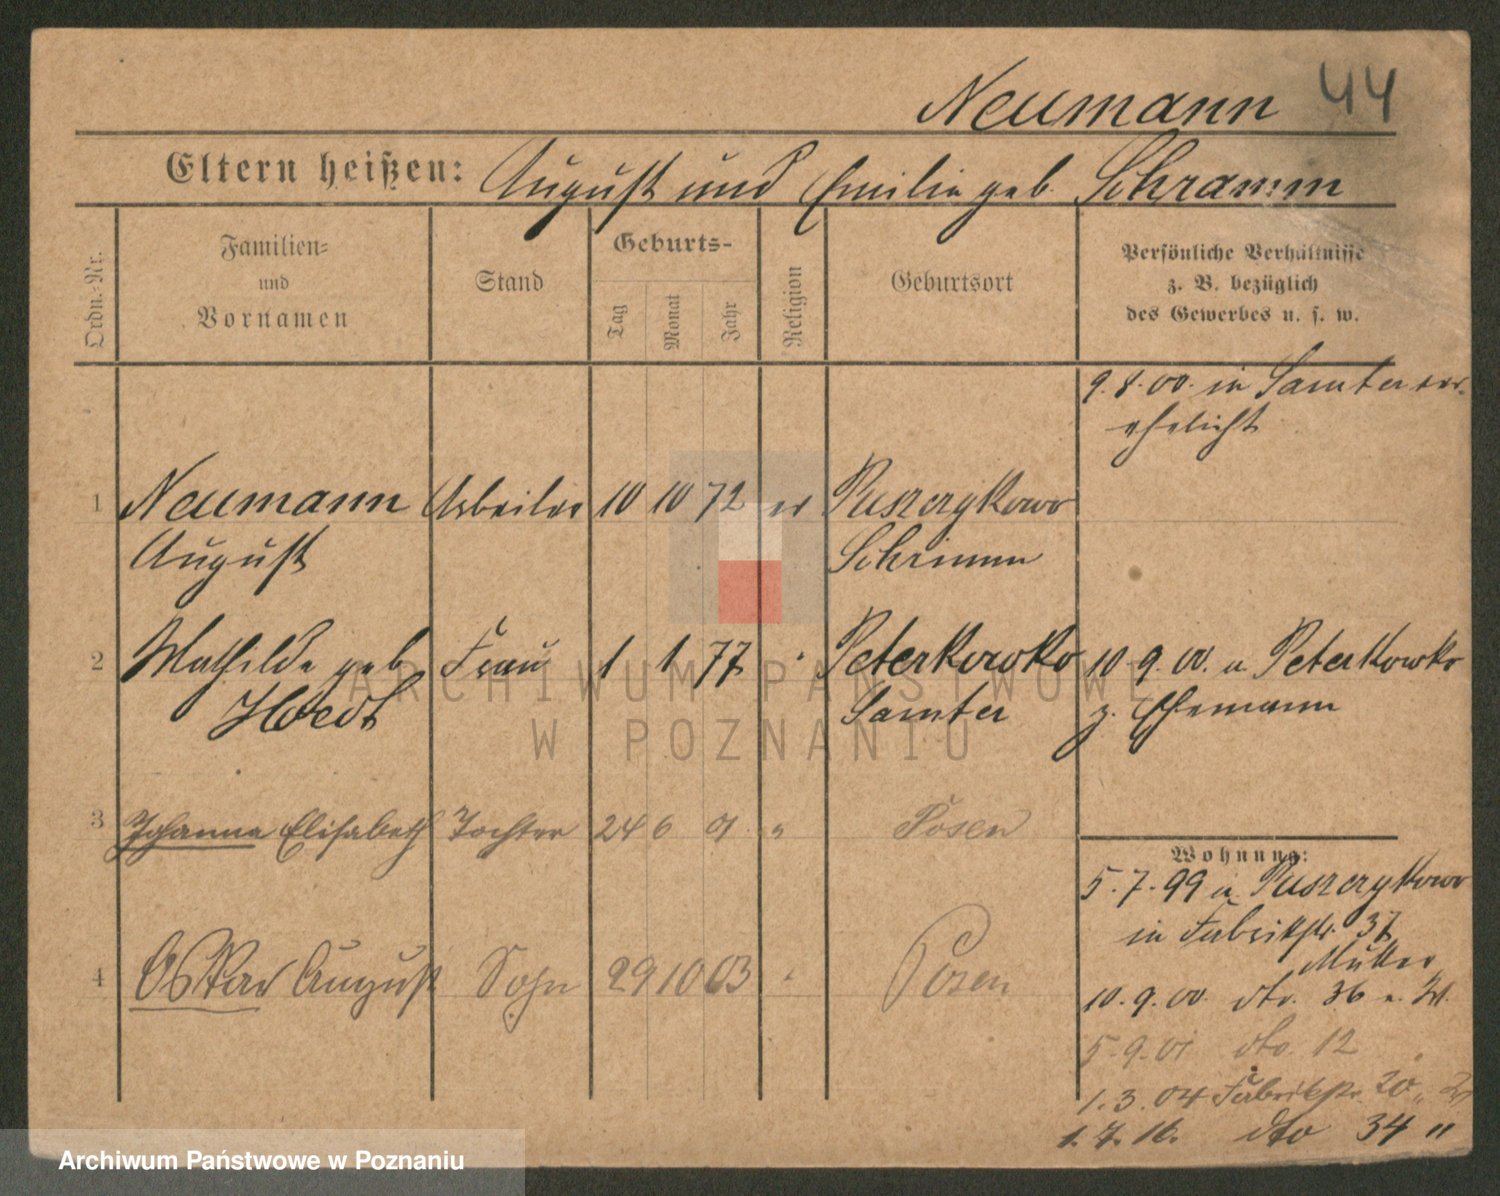 Neumann 44
Eltern heißen: August und Emilie geb. Schramm
Ordn.-Nr.
Familien-
und
Vornamen
Stand
Geburts-
Tag
Monat
Jahr
Religion
Geburtsort
Persönliche Verhältnisse
z. B. bezüglich
des Gewerbes u. s. w.
9.8.00. in Samter ver-
ehelicht
1 Neumann Arbeiter 10 10 72 ev Puszczykowo
August Schrimm
2 Mathilde geb Frau 1 1 77 " Peterkowko 10 9. 00. a Peterkowko
Hoedt Samter z. Ehemann
3 Johanna Elisabeth Tochter 24 6 01 " Posen
4 Oskar August Sohn 29 10 03 " Posen
Wohnung:
5.7.99 a Puszczykowo
in Fabrikstr. 37
Müller
10.9.00. dto. 36 a. W.
5.9.01 dto. 12
1.3.04 Fabrikstr. 20 "
1.7.16. dto 34 "
ARCHIWUM PAŃSTWOWE
W POZNANIU
Archiwum Państwowe w Poznaniu